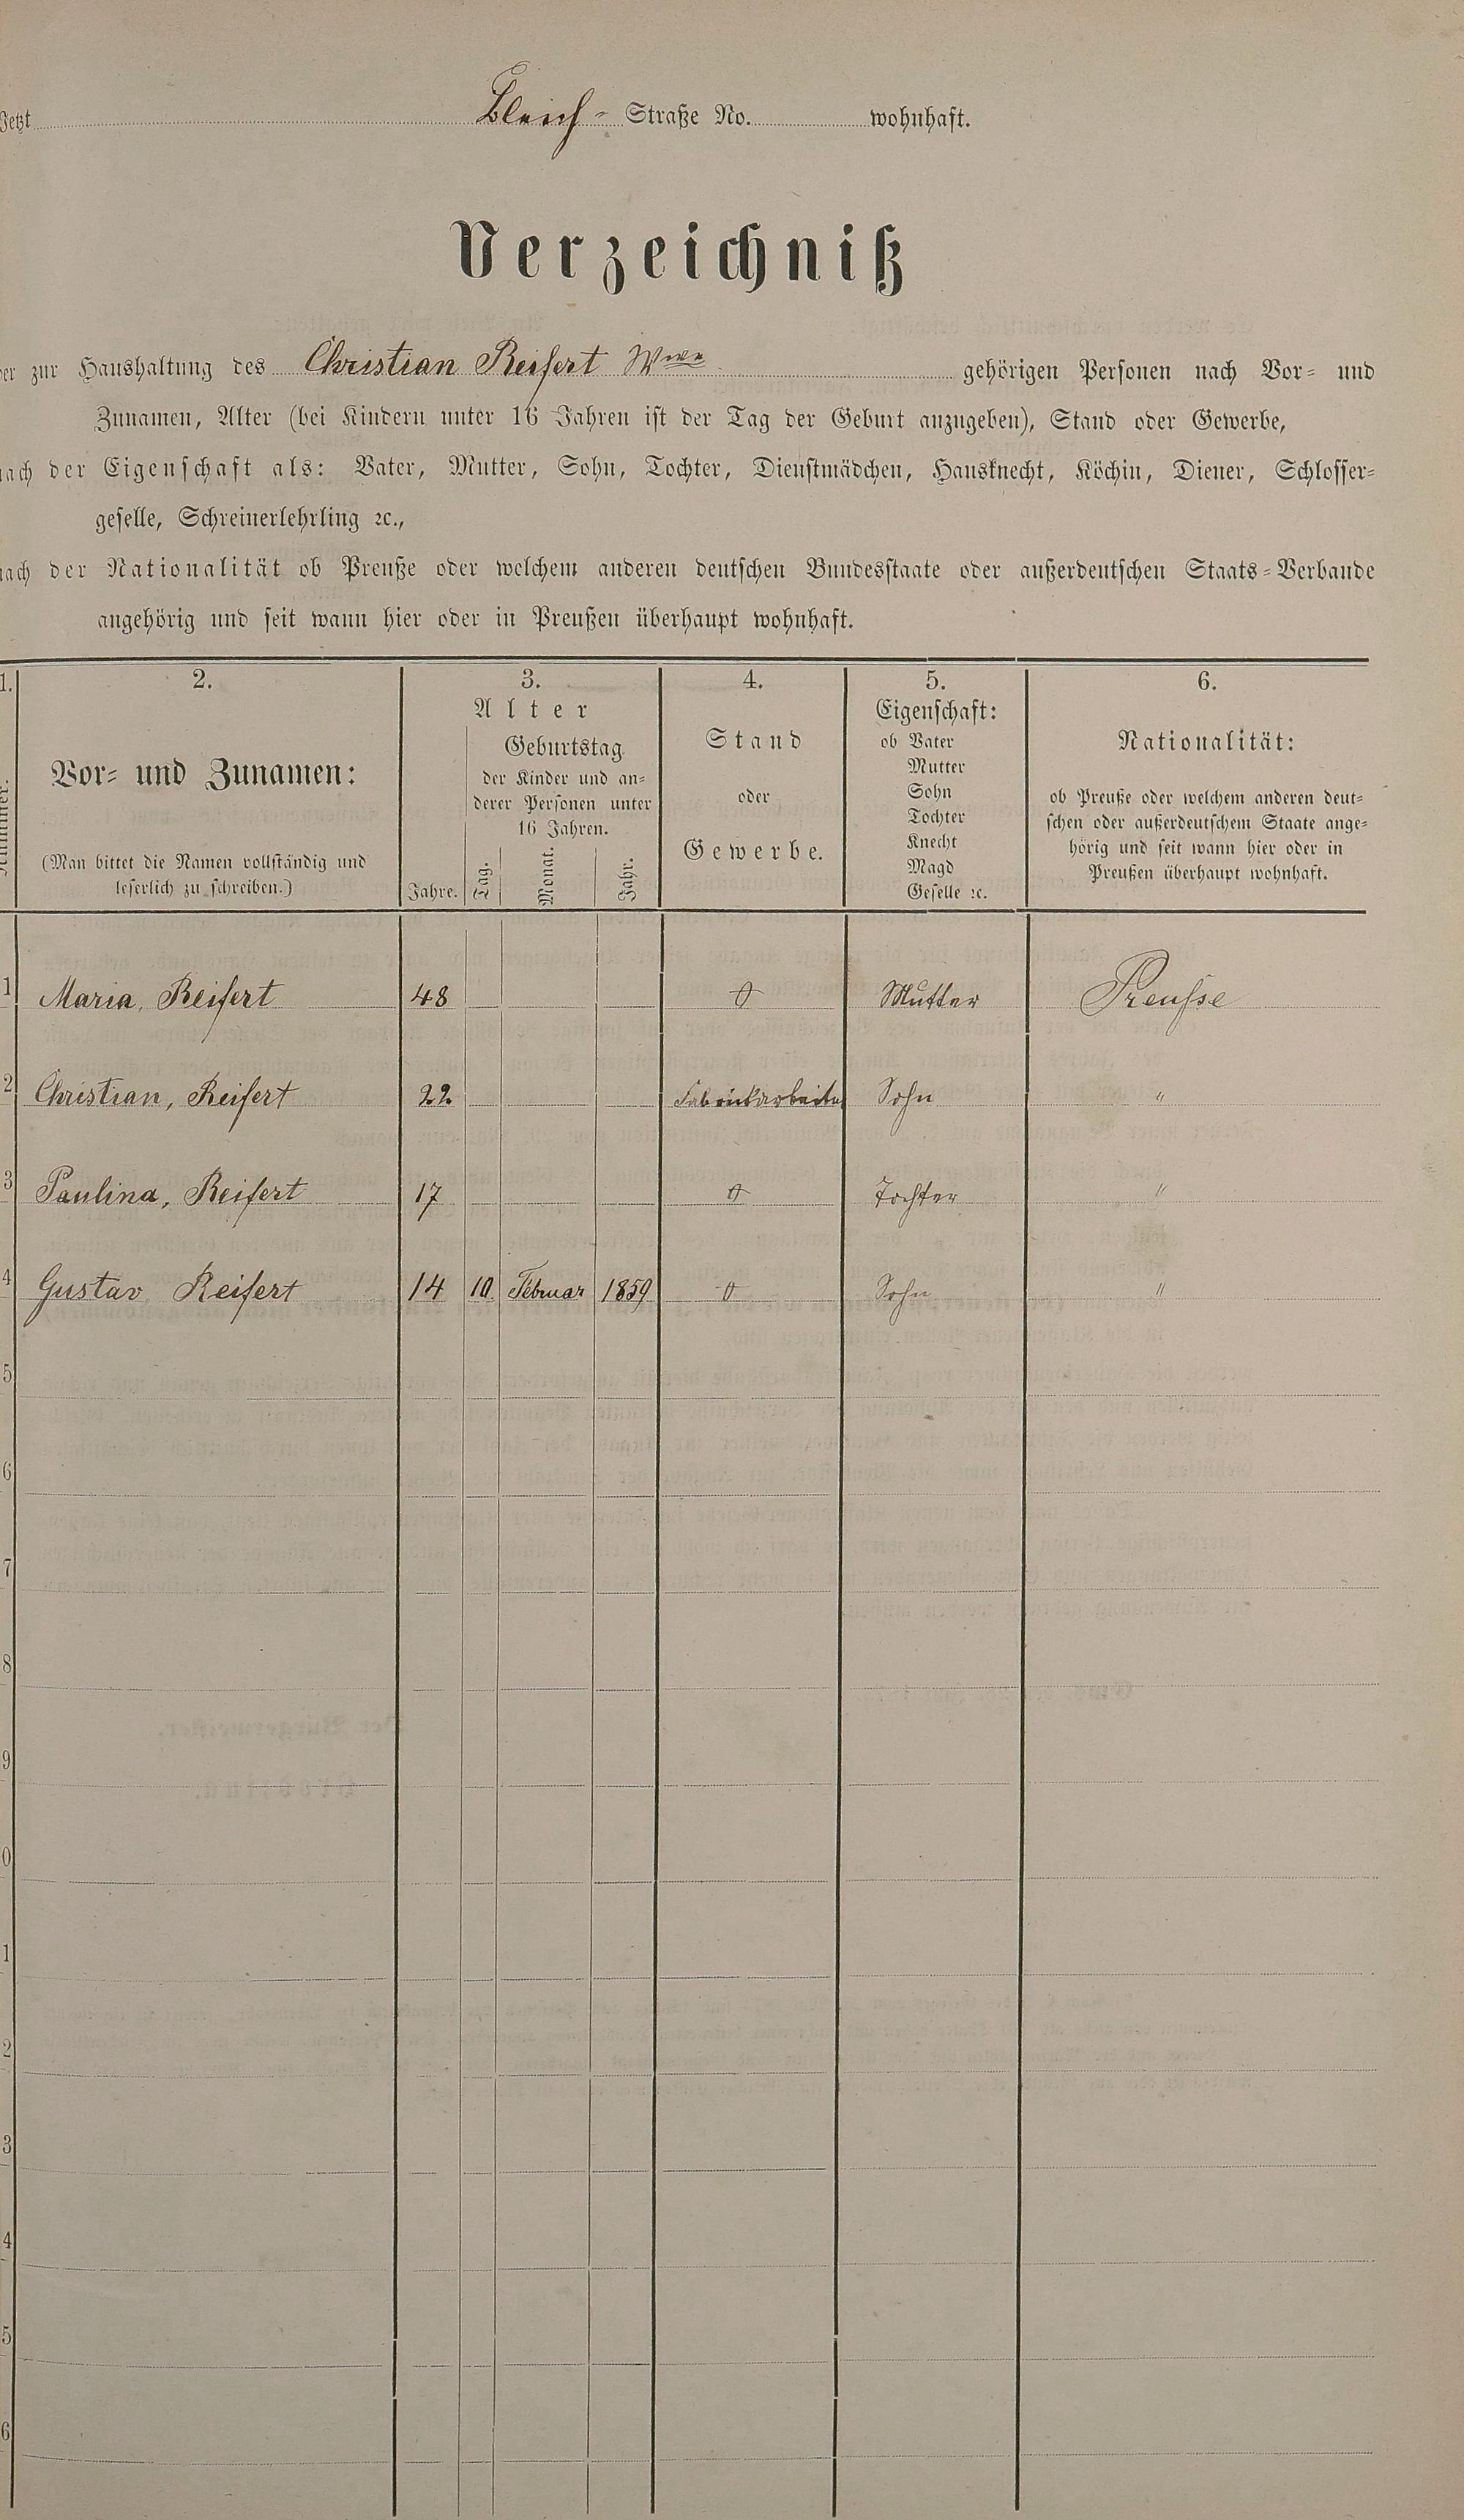 Jetzt Bleich- Straße No. wohnhaft.
Verzeichniß
der zur Haushaltung des Christian Reifert Wwe gehörigen Personen nach Vor- und
Zunamen, Alter (bei Kindern unter 16 Jahren ist der Tag der Geburt anzugeben), Stand oder Gewerbe,
nach der Eigenschaft als: Vater, Mutter, Sohn, Tochter, Dienstmädchen, Hausknecht, Köchin, Diener, Schlosser-
geselle, Schreinerlehrling ꝛc.,
nach der Nationalität ob Preuße oder welchem anderen deutschen Bundesstaate oder außerdeutschen Staats-Verbande
angehörig und seit wann hier oder in Preußen überhaupt wohnhaft.
1. 2. 3. 4. 5. 6.
Nummer.
Vor- und Zunamen:
(Man bittet die Namen vollständig und
leserlich zu schreiben.)
Alter
Jahre.
Geburtstag
der Kinder und an-
derer Personen unter
16 Jahren.
Tag. Monat. Jahr.
Stand
oder
Gewerbe.
Eigenschaft:
ob Vater
Mutter
Sohn
Tochter
Knecht
Magd
Geselle ꝛc.
Nationalität:
ob Preuße oder welchem anderen deut-
schen oder außerdeutschem Staate ange-
hörig und seit wann hier oder in
Preußen überhaupt wohnhaft.
1 Maria, Reifert 48 Mutter Preuße
2 Christian, Reifert 22 Fabrikarbeiter Sohn "
3 Paulina, Reifert 17 Tochter "
4 Gustav Reifert 14 10 Februar 1859 Sohn "
5
6
7
8
9
0
1
2
3
4
5
6